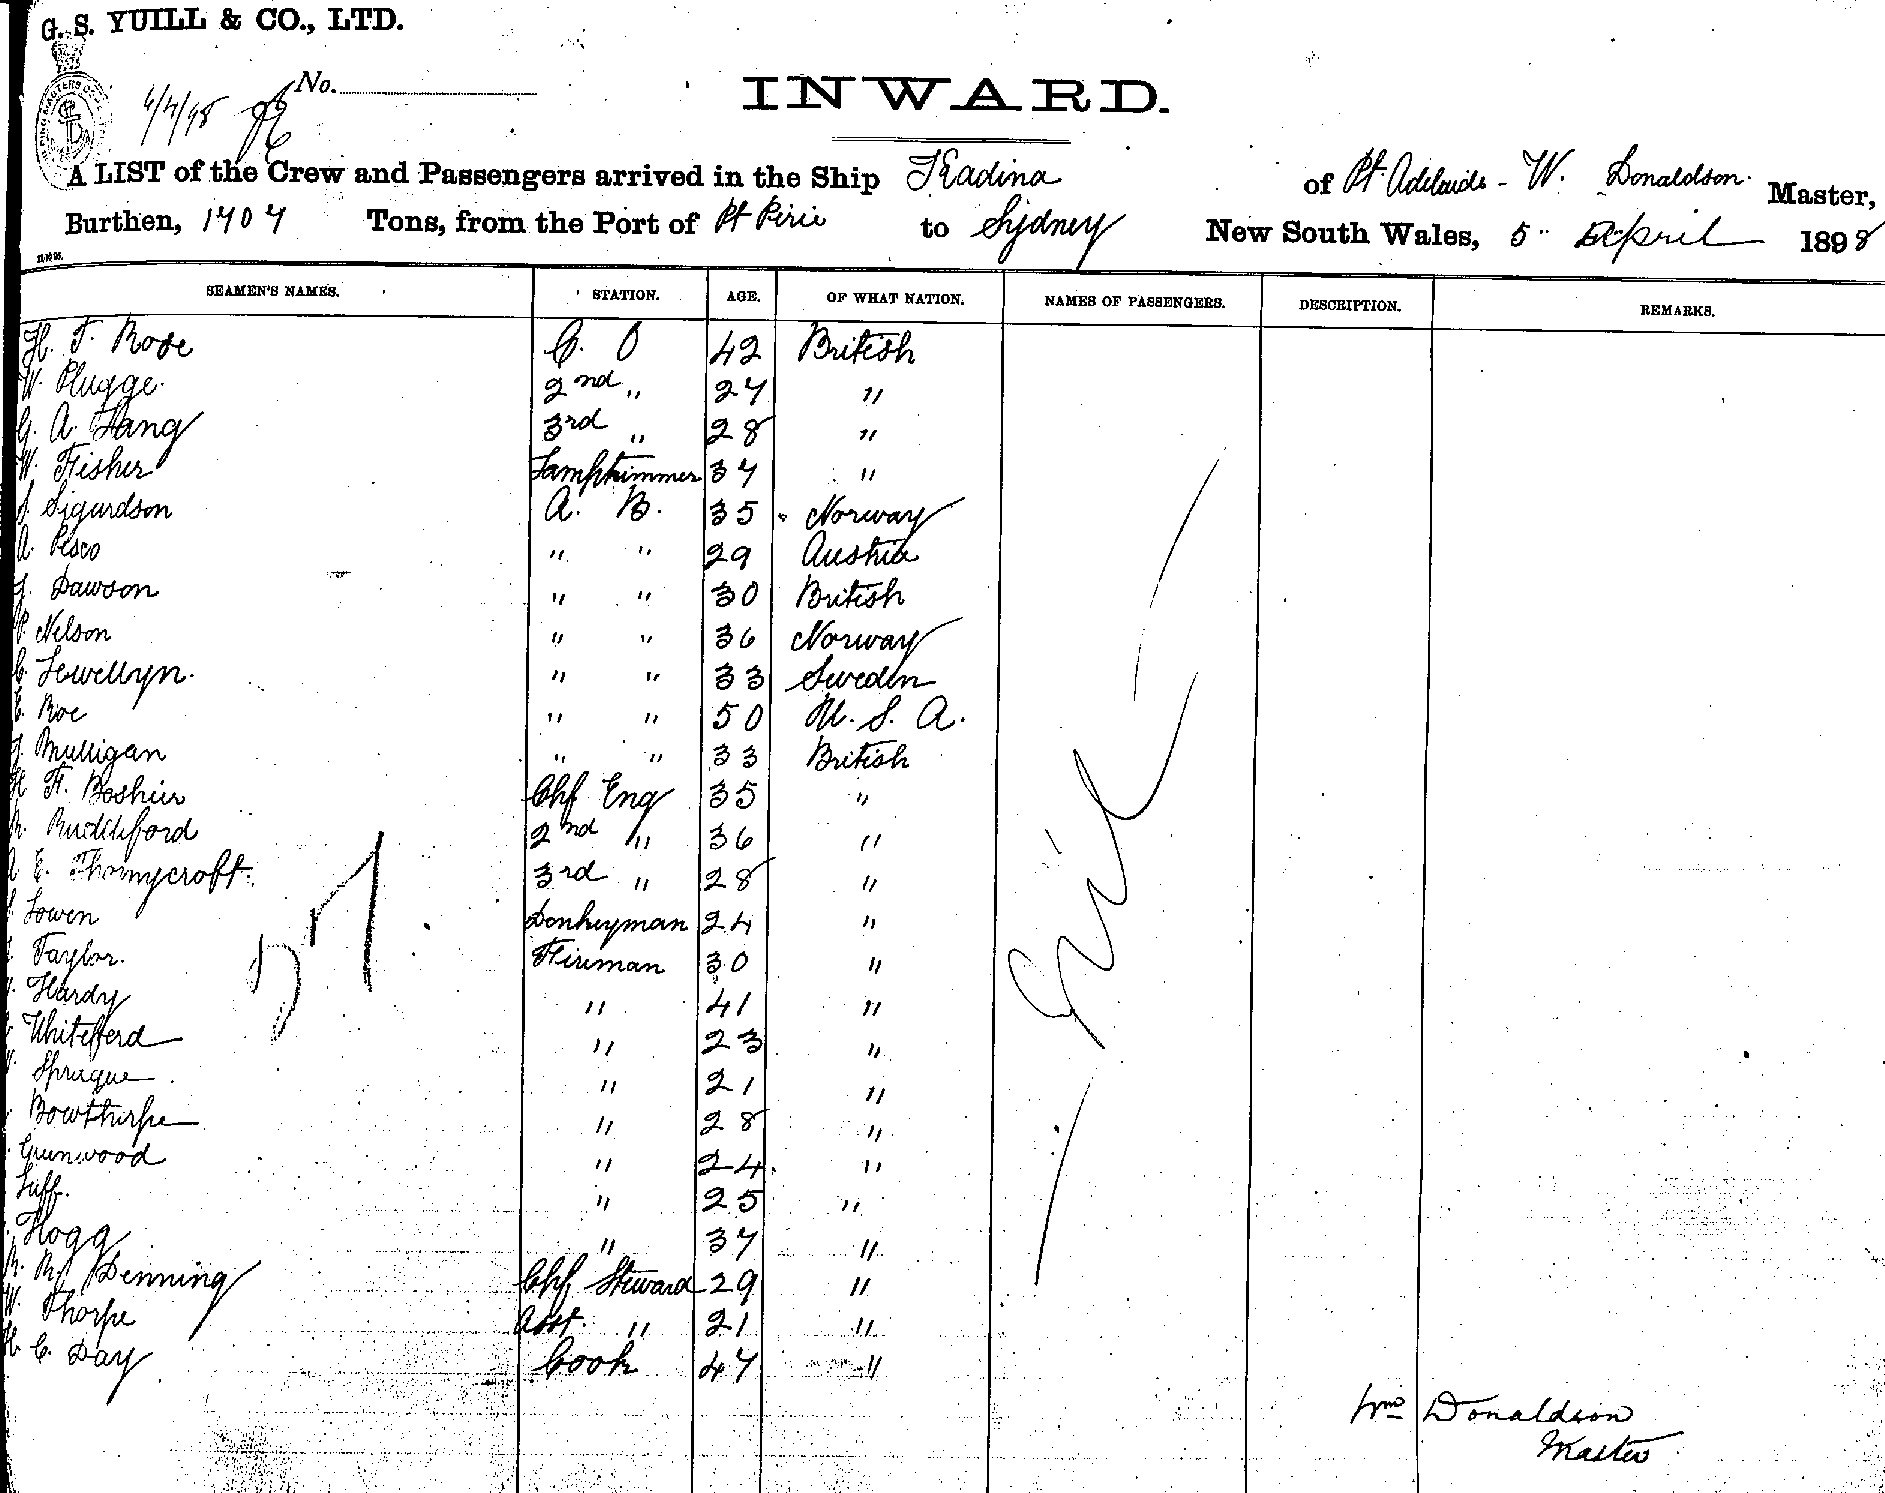 G. S. YUILL & CO., LTD.
No.
INWARD.
A LIST of the Crew and Passengers arrived in the Ship Kadina of Pt Adelaide - W. Donaldson Master,
Burthen, 1707 Tons, from the Port of Pt Pirie to Sydney New South Wales, 5" April 1898
SEAMEN'S NAMES. STATION. AGE. OF WHAT NATION. NAMES OF PASSENGERS. DESCRIPTION. REMARKS.
H. F. Rose C. O 42 British
W. Plugge 2nd " 27 "
G. A. Fang 3rd " 28 "
W. Fisher Lamptrimmer 37 "
Sigurdson A. B. 35 Norway
A. Pesco " " 29 Austria
J. Dawson " " 30 British
P. Nelson " " 36 Norway
C. Lewellyn. " " 33 Sweden
E. Roe " " 50 U. S. A.
J. Mulligan " " 33 British
H F. Boshier Chf Eng 35 "
R. Ruddleford 2nd " 36 "
A E. Thornycroft. 3rd " 28 "
Lowen Donkeyman 24 "
Taylor. Fireman 30 "
Hardy " 41 "
Whiteford " 23 "
Sprague " 21 "
Bowthorpe " 28 "
Greenwood " 24 "
Luff. " 25 "
Hogg " 37 "
R. R. Denning Chf Steward 29 "
W. Thorpe Asst. " 21 "
H. C. Day Cook 47 "
Nil
Wm Donaldson
Master